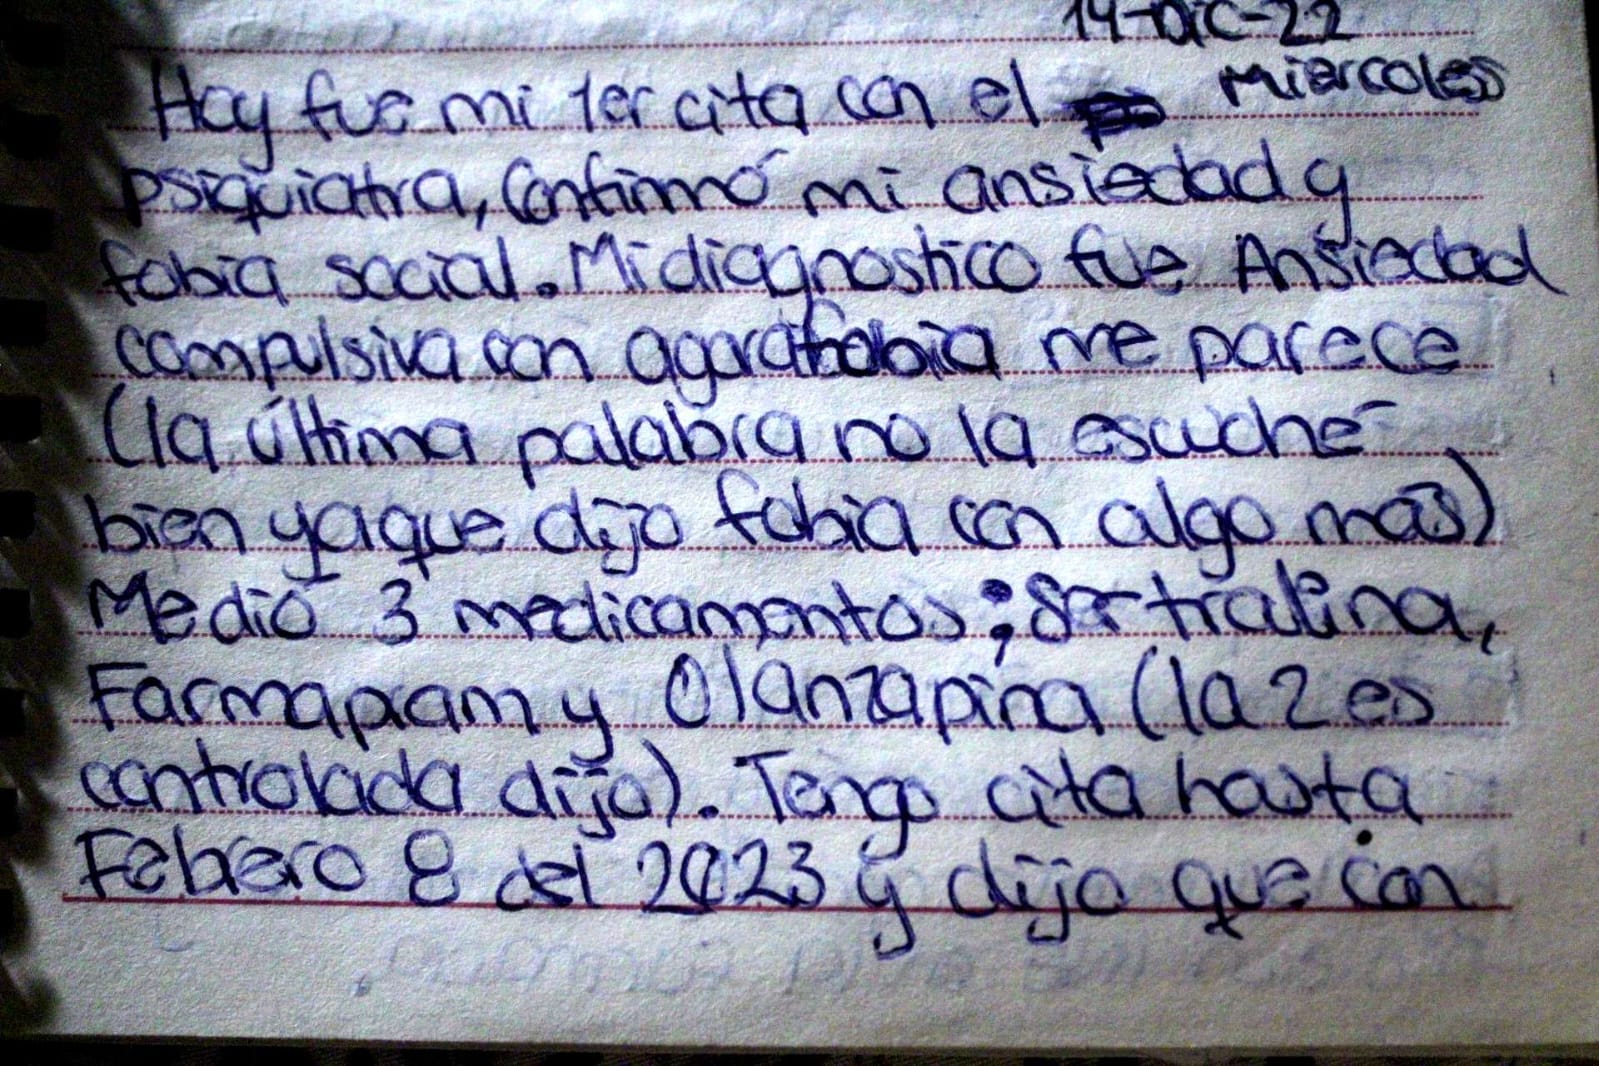 14-Dic-22
Miercoles
Hoy fue mi 1er cita con el
psiquiatra, Confirmó mi ansiedad y
fobia social. Mi diagnostico fue Ansiedad
compulsiva con agorafobia me parece
(la última palabra no la escuché
bien ya que dijo fobia con algo más)
Me dió 3 medicamentos; Sertralina,
Farmapram y Olanzapina (la 2 es
controlada dijo). Tengo cita hasta
Febrero 8 del 2023 y dijo que con